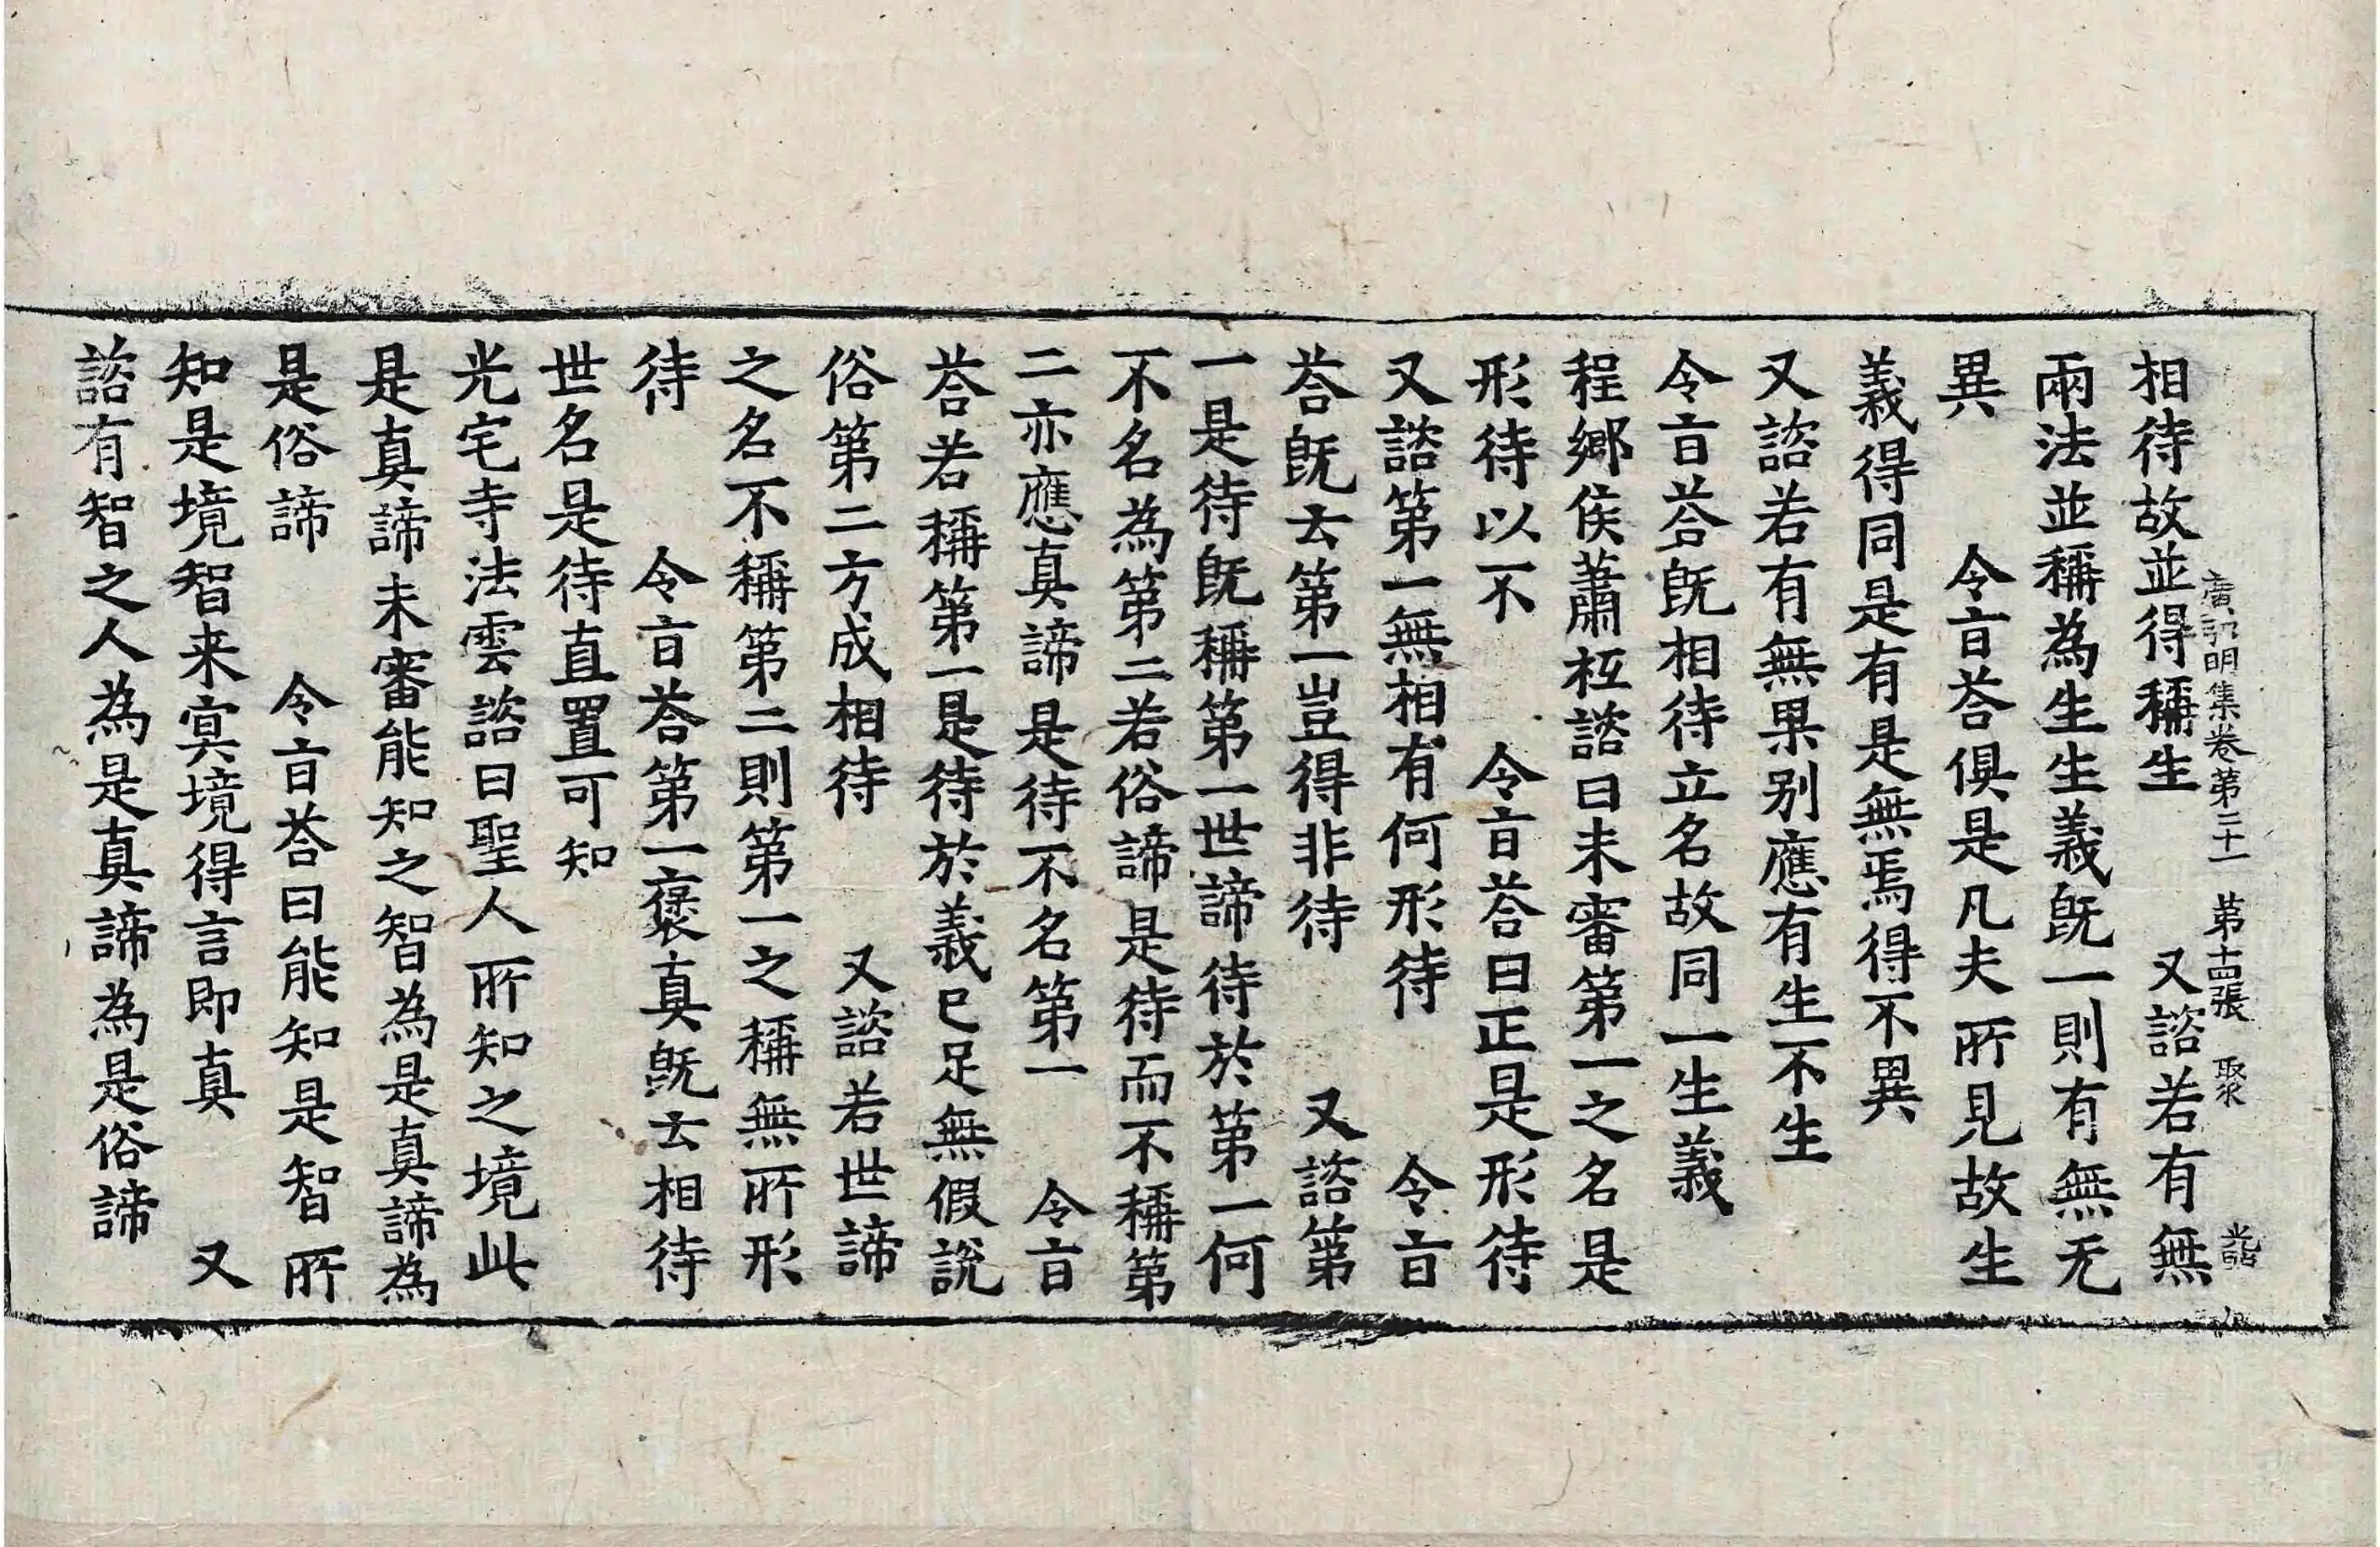 廣弘明集卷第二十一　第十四張　聚
相待故並得稱生　又諮若有無
兩法並稱為生生義旣一則有無无
異　令旨荅俱是凡夫所見故生
義得同是有是無焉得不異
又諮若有無果别應有生不生
令旨荅旣相待立名故同一生義
程鄉侯蕭祗諮曰未審第一之名是
形待以不　令旨荅曰正是形待
又諮第一無相有何形待　令旨
荅旣云第一豈得非待　又諮第
一是待旣稱第一世諦待於第一何
不名為第二若俗諦是待而不稱第
二亦應真諦是待不名第一　令旨
荅若稱第一是待於義已足無假說
俗第二方成相待　又諮若世諦
之名不稱第二則第一之稱無所形
待　令旨荅第一褒真旣云相待
世名是待直置可知
光宅寺法雲諮曰聖人所知之境此
是真諦未審能知之智為是真諦為
是俗諦　令旨荅曰能知是智所
知是境智来㝠境得言即真　又
諮有智之人為是真諦為是俗諦